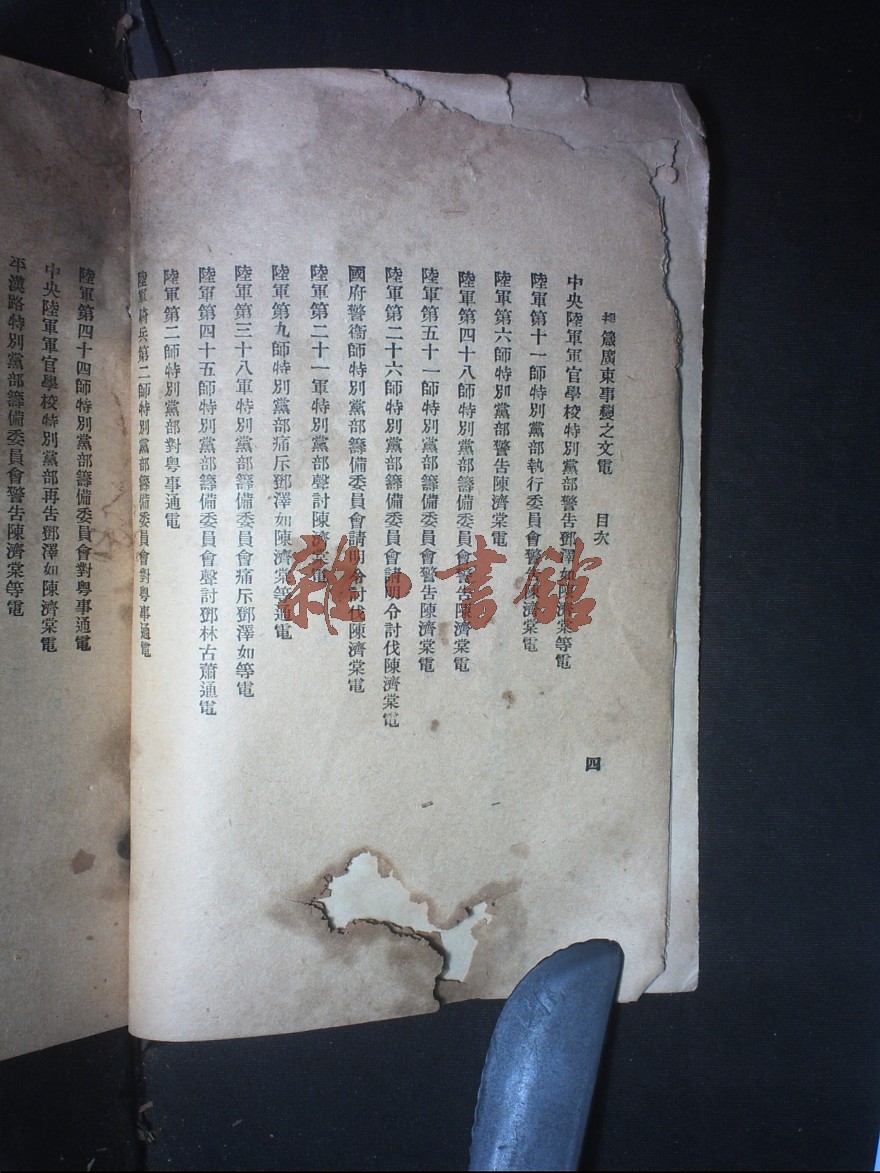 鄧蕭廣東事變之文電 目次
四
中央陸軍軍官學校特別黨部警告鄧澤如陳濟棠等電
陸軍第十一師特別黨部執行委員會警告陳濟棠電
陸軍第六師特別黨部警告陳濟棠電
陸軍第四十八師特別黨部籌備委員會警告陳濟棠電
陸軍第五十一師特別黨部籌備委員會警告陳濟棠電
陸軍第二十六師特別黨部籌備委員會請明令討伐陳濟棠電
國府警衞師特別黨部籌備委員會請明令討伐陳濟棠電
陸軍第二十一軍特別黨部聲討陳濟棠電
陸軍第九師特別黨部痛斥鄧澤如陳濟棠等通電
陸軍第三十八軍特別黨部籌備委員會痛斥鄧澤如等電
陸軍第四十五師特別黨部籌備委員會聲討鄧林古蕭通電
陸軍第二師特別黨部對粵事通電
陸軍騎兵第二師特別黨部籌備委員會對粵事通電
陸軍第四十四師特別黨部籌備委員會對粵事通電
中央陸軍軍官學校特別黨部再告鄧澤如陳濟棠電
平漢路特別黨部籌備委員會警告陳濟棠等電
雜·書館